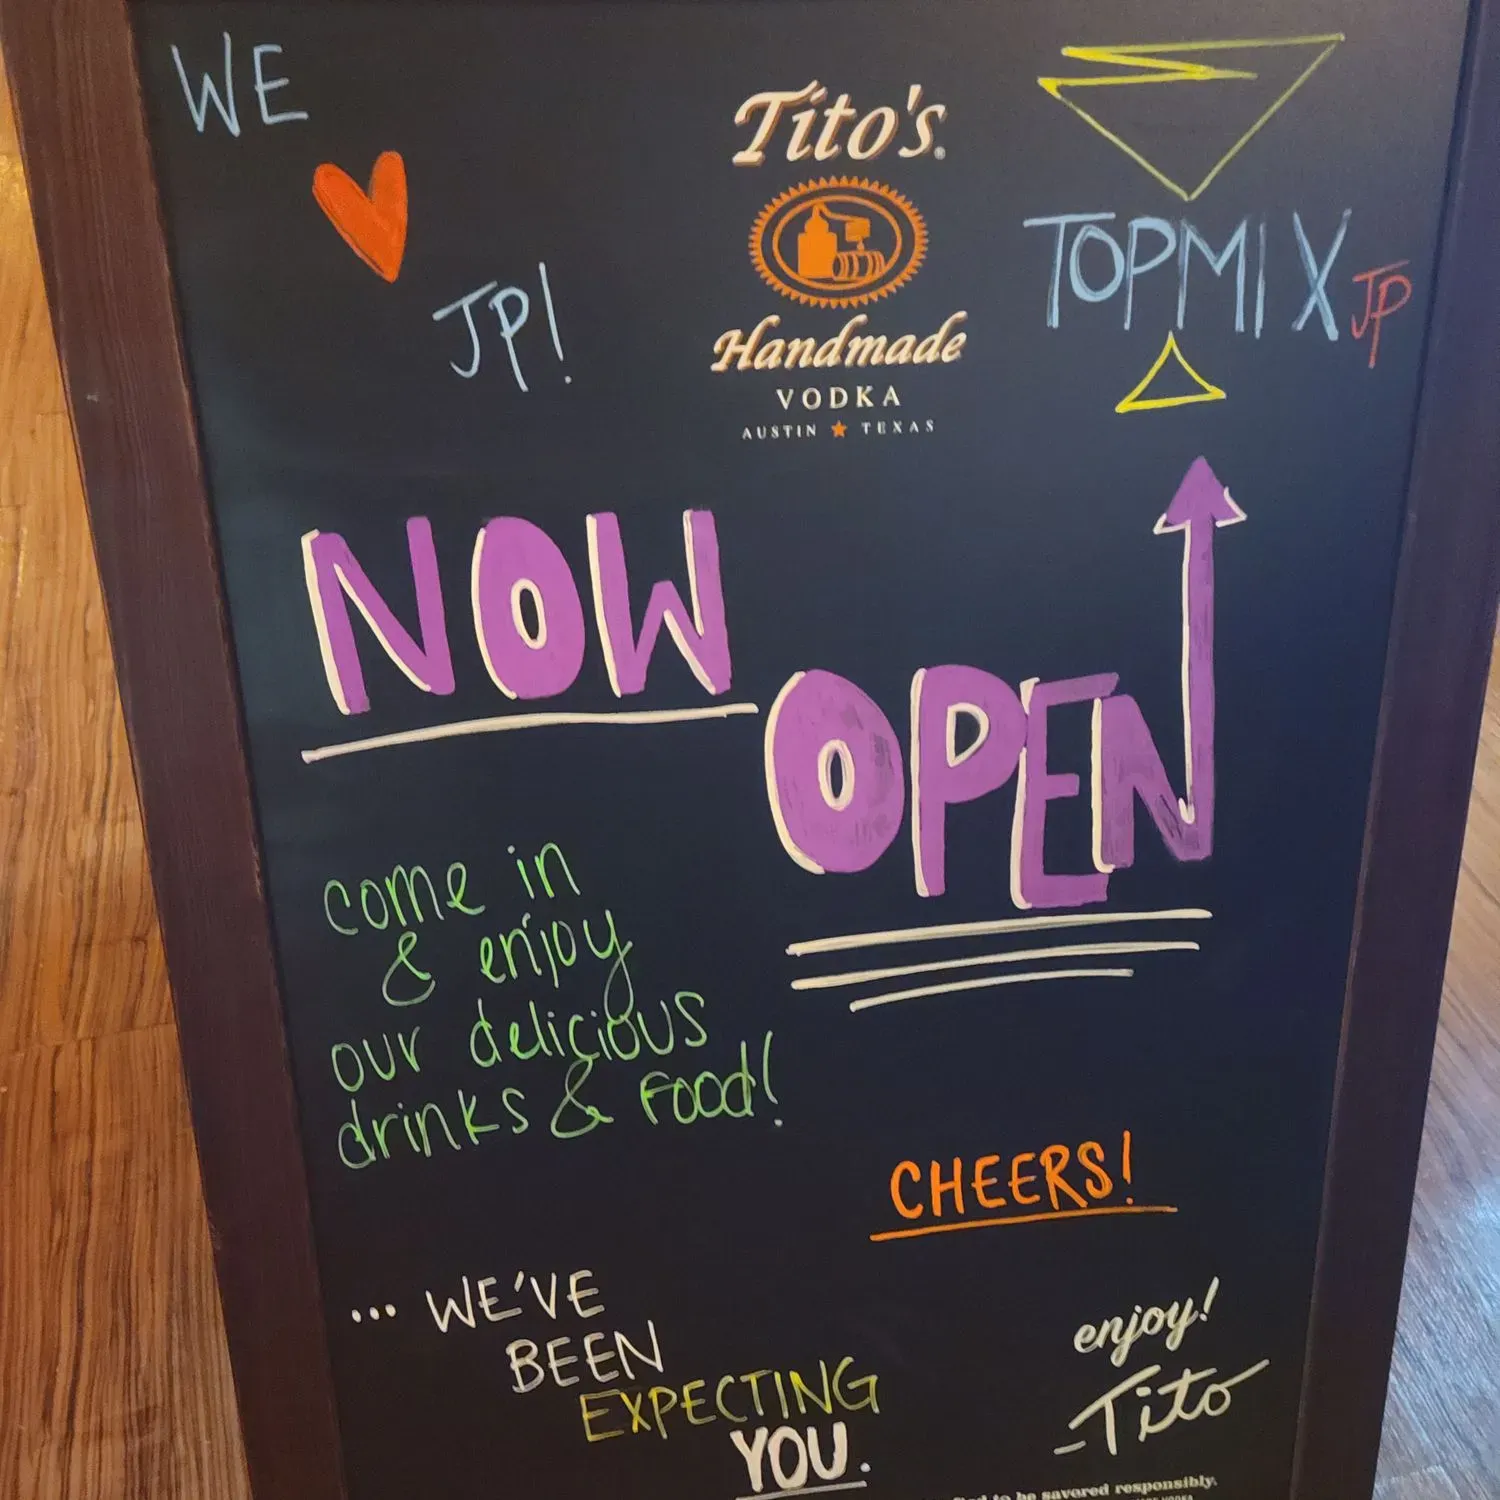 WE
JP!
Tito's®
Handmade
VODKA
AUSTIN ★ TEXAS
TOPMIX JP
NOW
OPEN
come in
& enjoy
our delicious
drinks & FOOD!
CHEERS!
... WE'VE
BEEN
EXPECTING
YOU.
enjoy!
-Tito
to be savored responsibly.